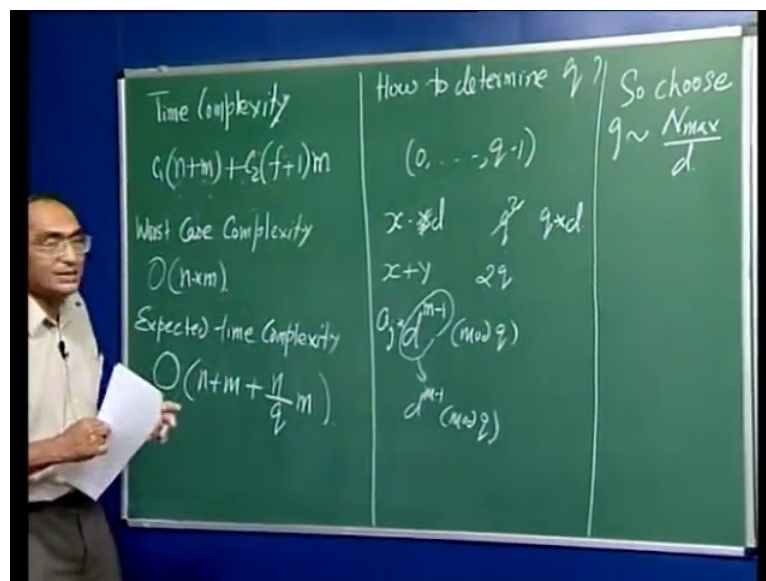 Time Complexity
C₁(n+m)+C₂(f+1)m
Worst Case Complexity
O(n*m)
Expected time Complexity
O(n+m+n/q m)
How to determine q?
(0, ..., q-1)
x * d q² q*d
x+y 2q
a_j * d^{m-1} (mod q)
d^{m-1} (mod q)
So choose
q ~ Nmax/d